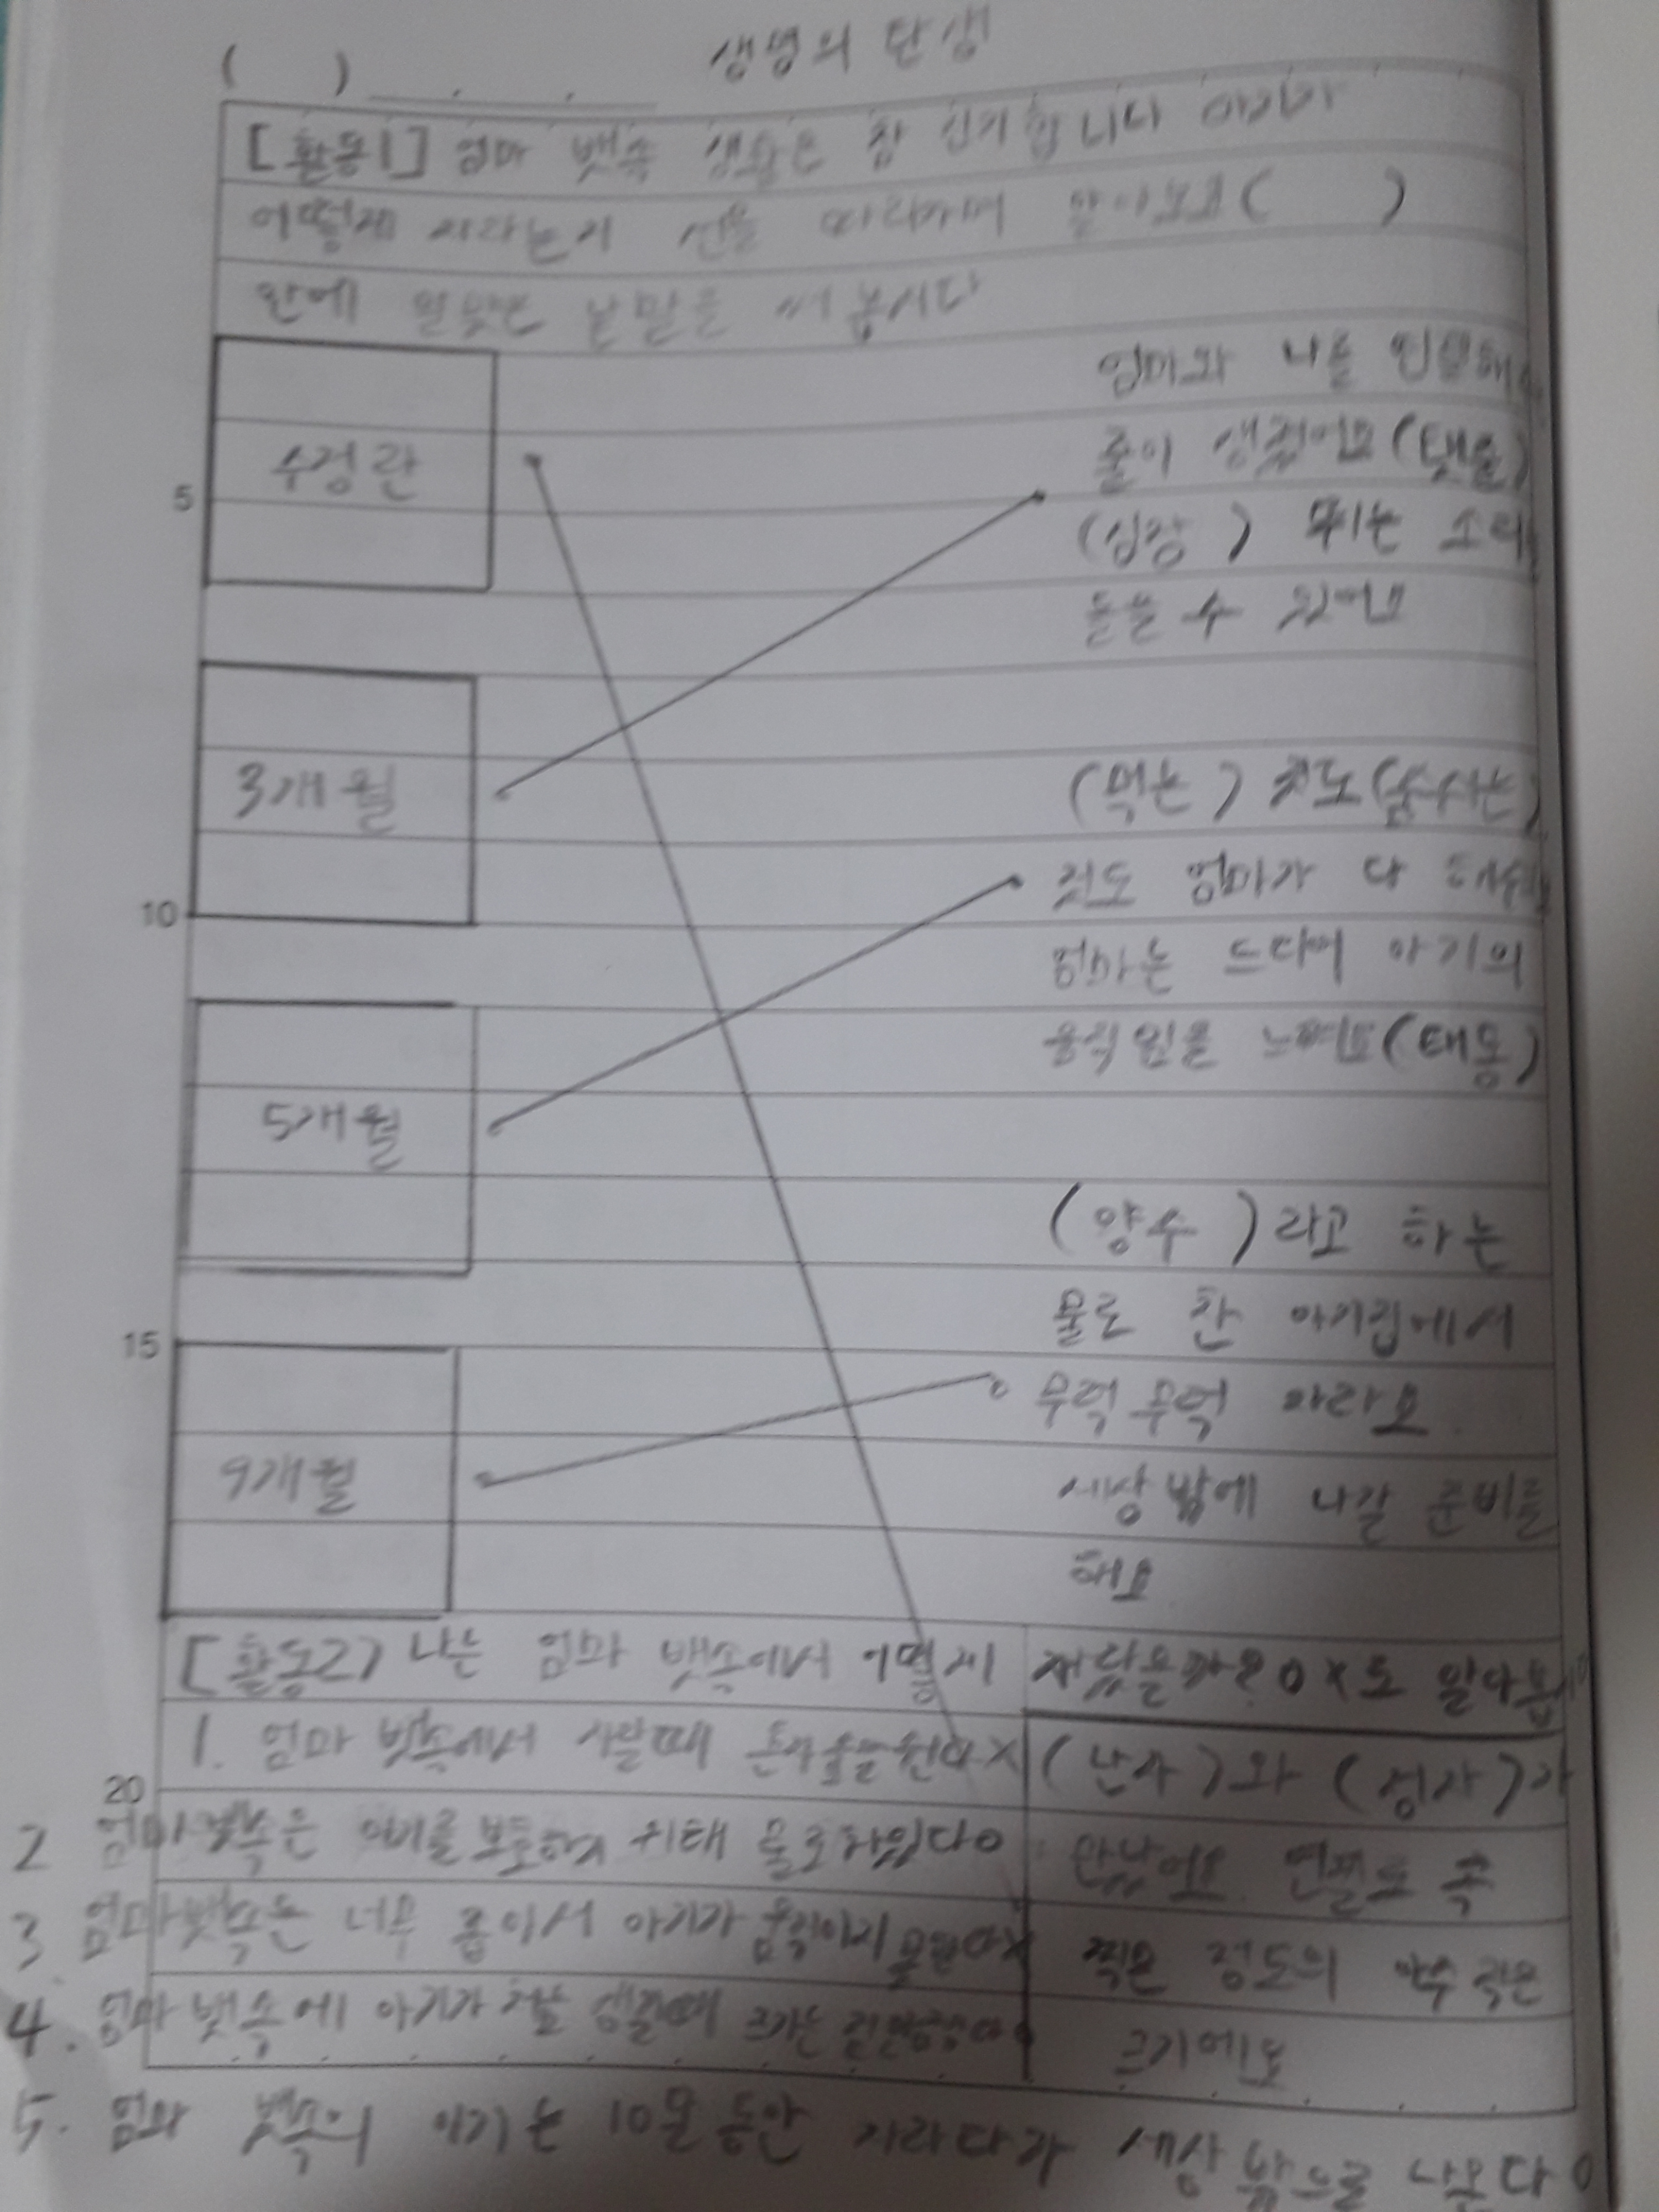 생명의 탄생
( )
[활동1] 엄마 뱃속 생활은 참 신기합니다 아기가
어떻게 자라는지 선을 따라가며 알아보고( )
안에 알맞은 낱말을 써 봅시다
수정란
엄마와 나를 연결해
줄이 생겼어요(탯줄)
5
(심장 ) 뛰는 소리
들을 수 있어요
3개월
(먹는 ) 것도(숨쉬는)
10
것도 엄마가 다 해줘
엄마는 드디어 아기의
움직임을 느껴요(태동)
5개월
(양수 )라고 하는
물로 찬 아기집에서
15
무럭무럭 자라요.
9개월
세상밖에 나갈 준비를
해요
[활동2] 나는 엄마 뱃속에서 어떻게 자랐을까요? O X로 알아봅
1. 엄마 뱃속에서 자랄때 혼자 X
(난자 )와 (정자 )가
20
2 엄마뱃속은 보호하기 위해 물로차있다O
만났어요. 연필로 콕
3 엄마뱃속은 너무 좁아서 아기가 움직이지 못한다X
찍은 정도의 아주 작은
4. 엄마 뱃속에 아기가 처음 생길때 크기는
크기에요
5. 엄마 뱃속의 아기는 10달 동안 자라다가 세상 밖으로 나온다 O